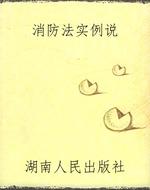 消防法实例说
湖南人民出版社